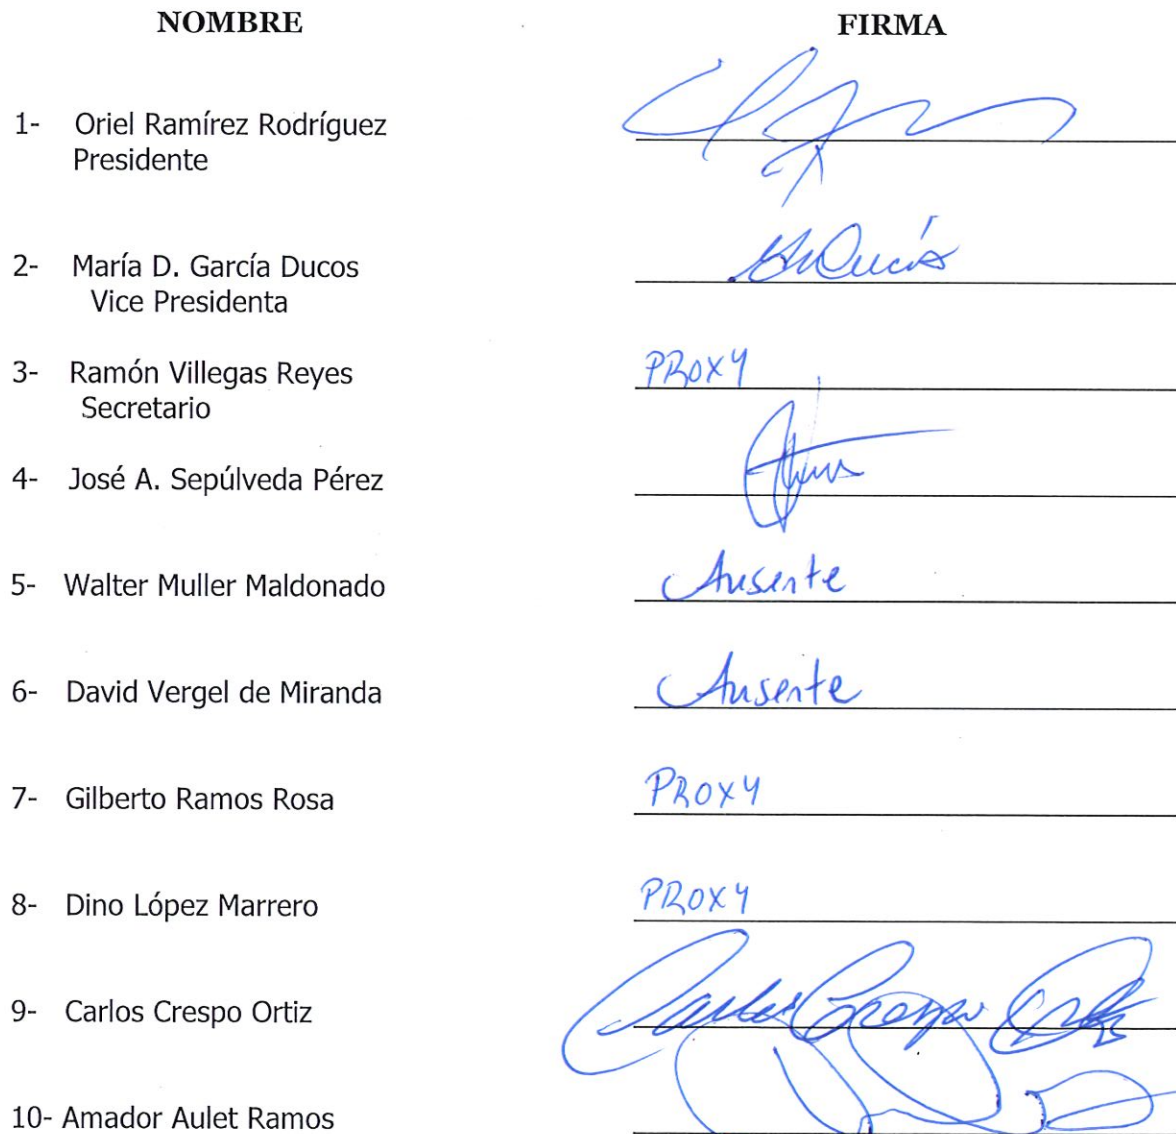 NOMBRE FIRMA
1- Oriel Ramírez Rodríguez
Presidente
2- María D. García Ducos
Vice Presidenta
3- Ramón Villegas Reyes PROXY
Secretario
4- José A. Sepúlveda Pérez
5- Walter Muller Maldonado Ausente
6- David Vergel de Miranda Ausente
7- Gilberto Ramos Rosa PROXY
8- Dino López Marrero PROXY
9- Carlos Crespo Ortiz Carlos Crespo Ortiz
10- Amador Aulet Ramos